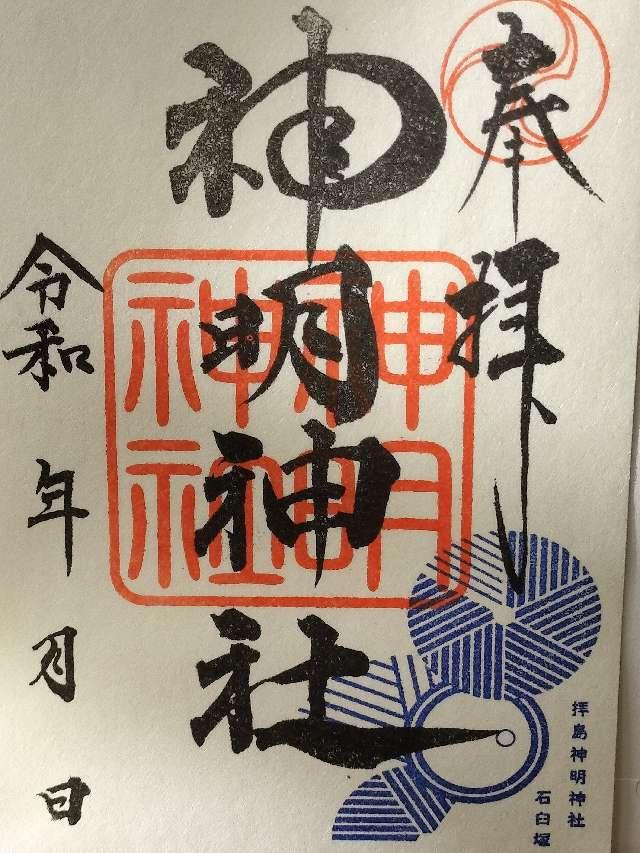 奉拝
神明神社
神明神社
令和 年 月 日
拝島神明神社
石臼塚